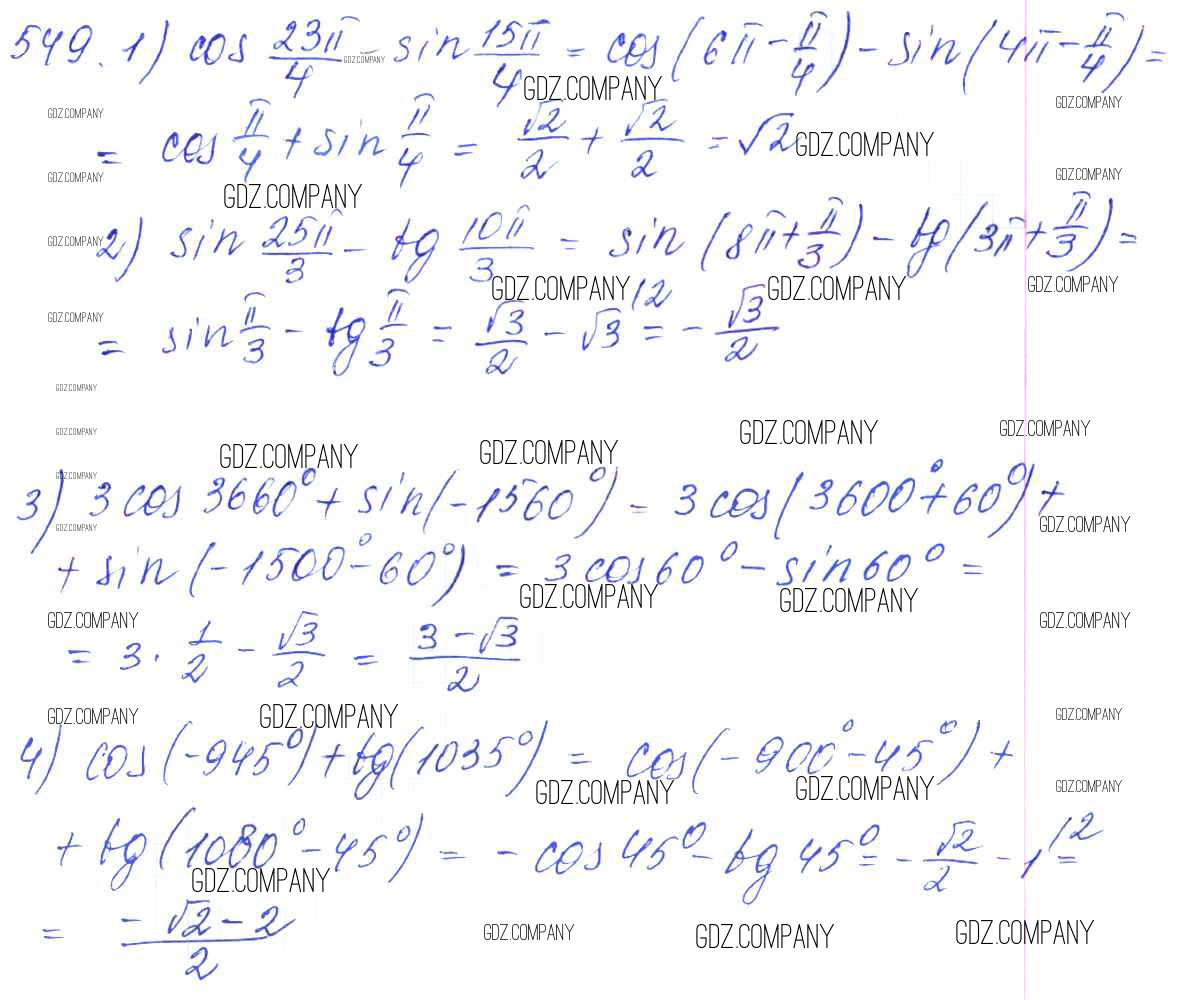 549. 1) cos 23π/4 - sin 15π/4 = cos(6π - π/4) - sin(4π - π/4) =
= cos π/4 + sin π/4 = √2/2 + √2/2 = √2
2) sin 25π/3 - tg 10π/3 = sin (8π + π/3) - tg(3π + π/3) =
= sin π/3 - tg π/3 = √3/2 - √3 /2 = - √3/2
3) 3 cos 3660° + sin(-1560°) = 3 cos(3600° + 60°) +
+ sin(-1500° - 60°) = 3 cos 60° - sin 60° =
= 3 · 1/2 - √3/2 = (3 - √3)/2
4) cos(-945°) + tg(1035°) = cos(-900° - 45°) +
+ tg(1080° - 45°) = - cos 45° - tg 45° = - √2/2 - 1 /2 =
= (-√2 - 2)/2
GDZ.COMPANY